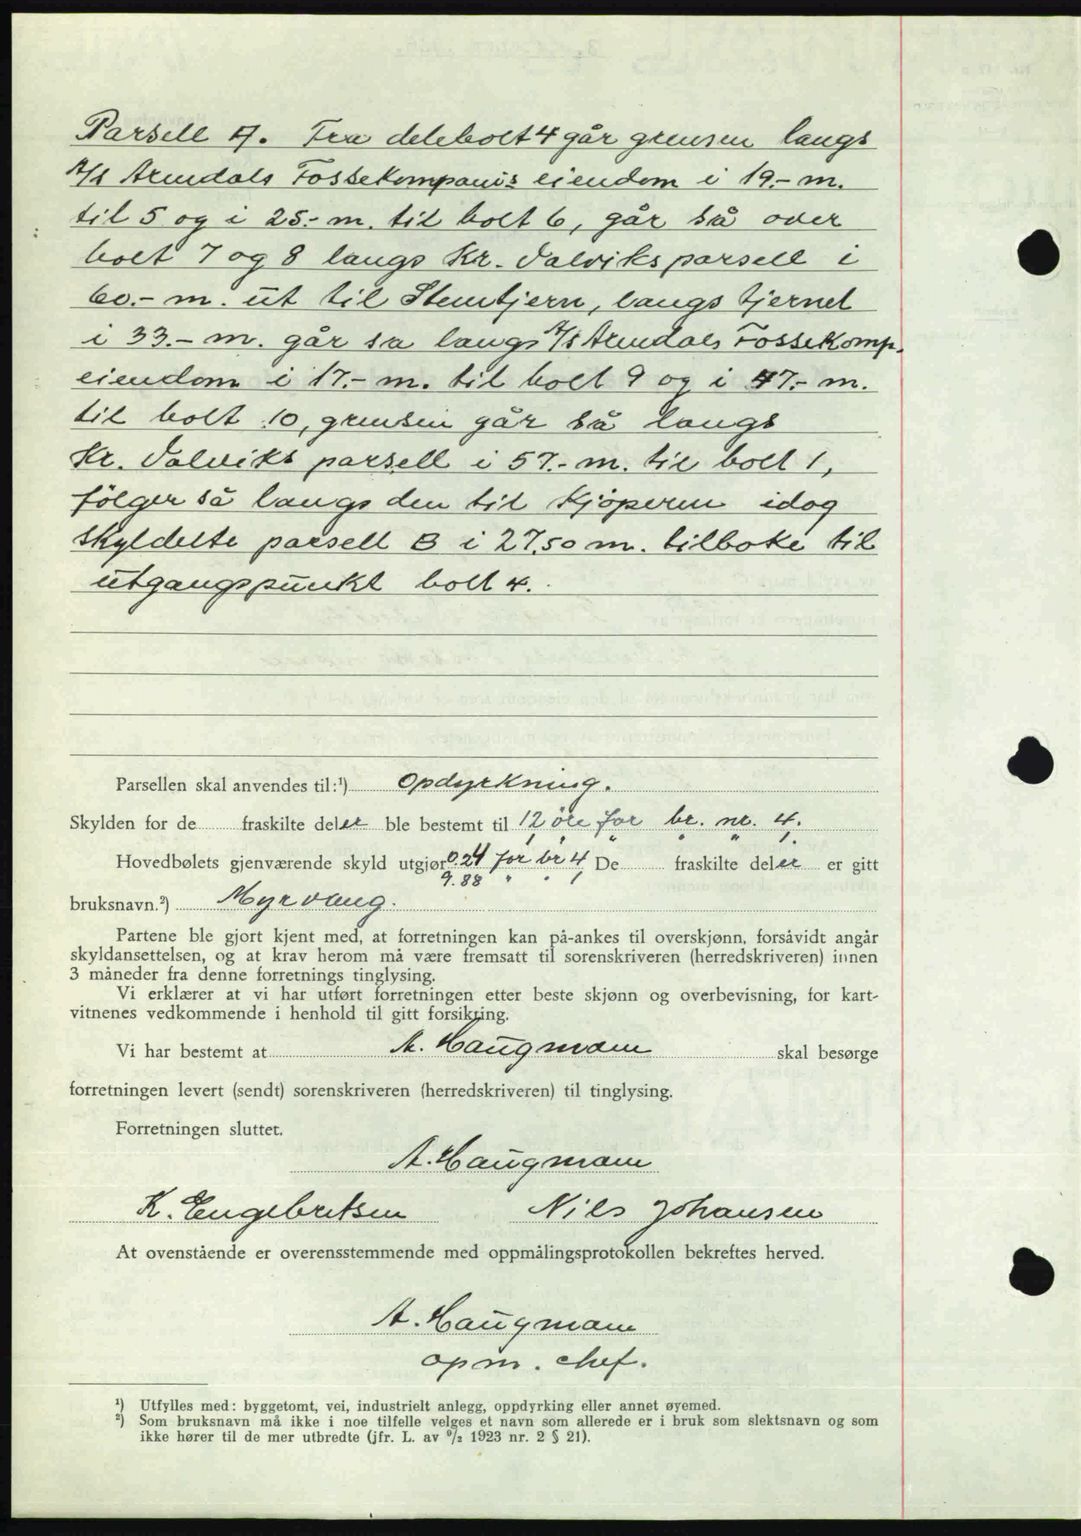 Parsell A. Fra delebolt 4 går grensen langs
A/S Arendals Fossekompanis eiendom i 19.- m.
til 5 og i 25.- m. til bolt 6, går så over
bolt 7 og 8 langs Kr. Valviks parsell i
60.- m. ut til Stemtjern, langs tjernet
i 33.- m. går sa langs A/S Arendals Fossekomp.
eiendom i 17.- m. til bolt 9 og i 47.- m.
til bolt 10, grensen går så langs
Kr. Valviks parsell i 57.- m. til bolt 1,
følger så langs den til kjöperen idag
skyldelte parsell B i 27,50 m. tilbake til
utgangspunkt bolt 4.
Parsellen skal anvendes til:¹) Opdyrkning.
Skylden for de fraskilte deler ble bestemt til 12 öre for br. nr. 4.
1 " " " 1.
Hovedbølets gjenværende skyld utgjør 0.24 for br 4 De fraskilte deler er gitt
9.88 " " 1
bruksnavn.²) Myrvang.
Partene ble gjort kjent med, at forretningen kan på-ankes til overskjønn, forsåvidt angår
skyldansettelsen, og at krav herom må være fremsatt til sorenskriveren (herredskriveren) innen
3 måneder fra denne forretnings tinglysing.
Vi erklærer at vi har utført forretningen etter beste skjønn og overbevisning, for kart-
vitnenes vedkommende i henhold til gitt forsikring.
Vi har bestemt at A. Haugmoen skal besørge
forretningen levert (sendt) sorenskriveren (herredskriveren) til tinglysing.
Forretningen sluttet.
A. Haugmoen
K. Engebretsen Nils Johansen
At ovenstående er overensstemmende med oppmålingsprotokollen bekreftes herved.
A. Haugmoen
opm. chef.
¹) Utfylles med: byggetomt, vei, industrielt anlegg, oppdyrking eller annet øyemed.
²) Som bruksnavn må ikke i noe tilfelle velges et navn som allerede er i bruk som slektsnavn og som
ikke hører til de mer utbredte (jfr. L. av ⁹/₂ 1923 nr. 2 § 21).